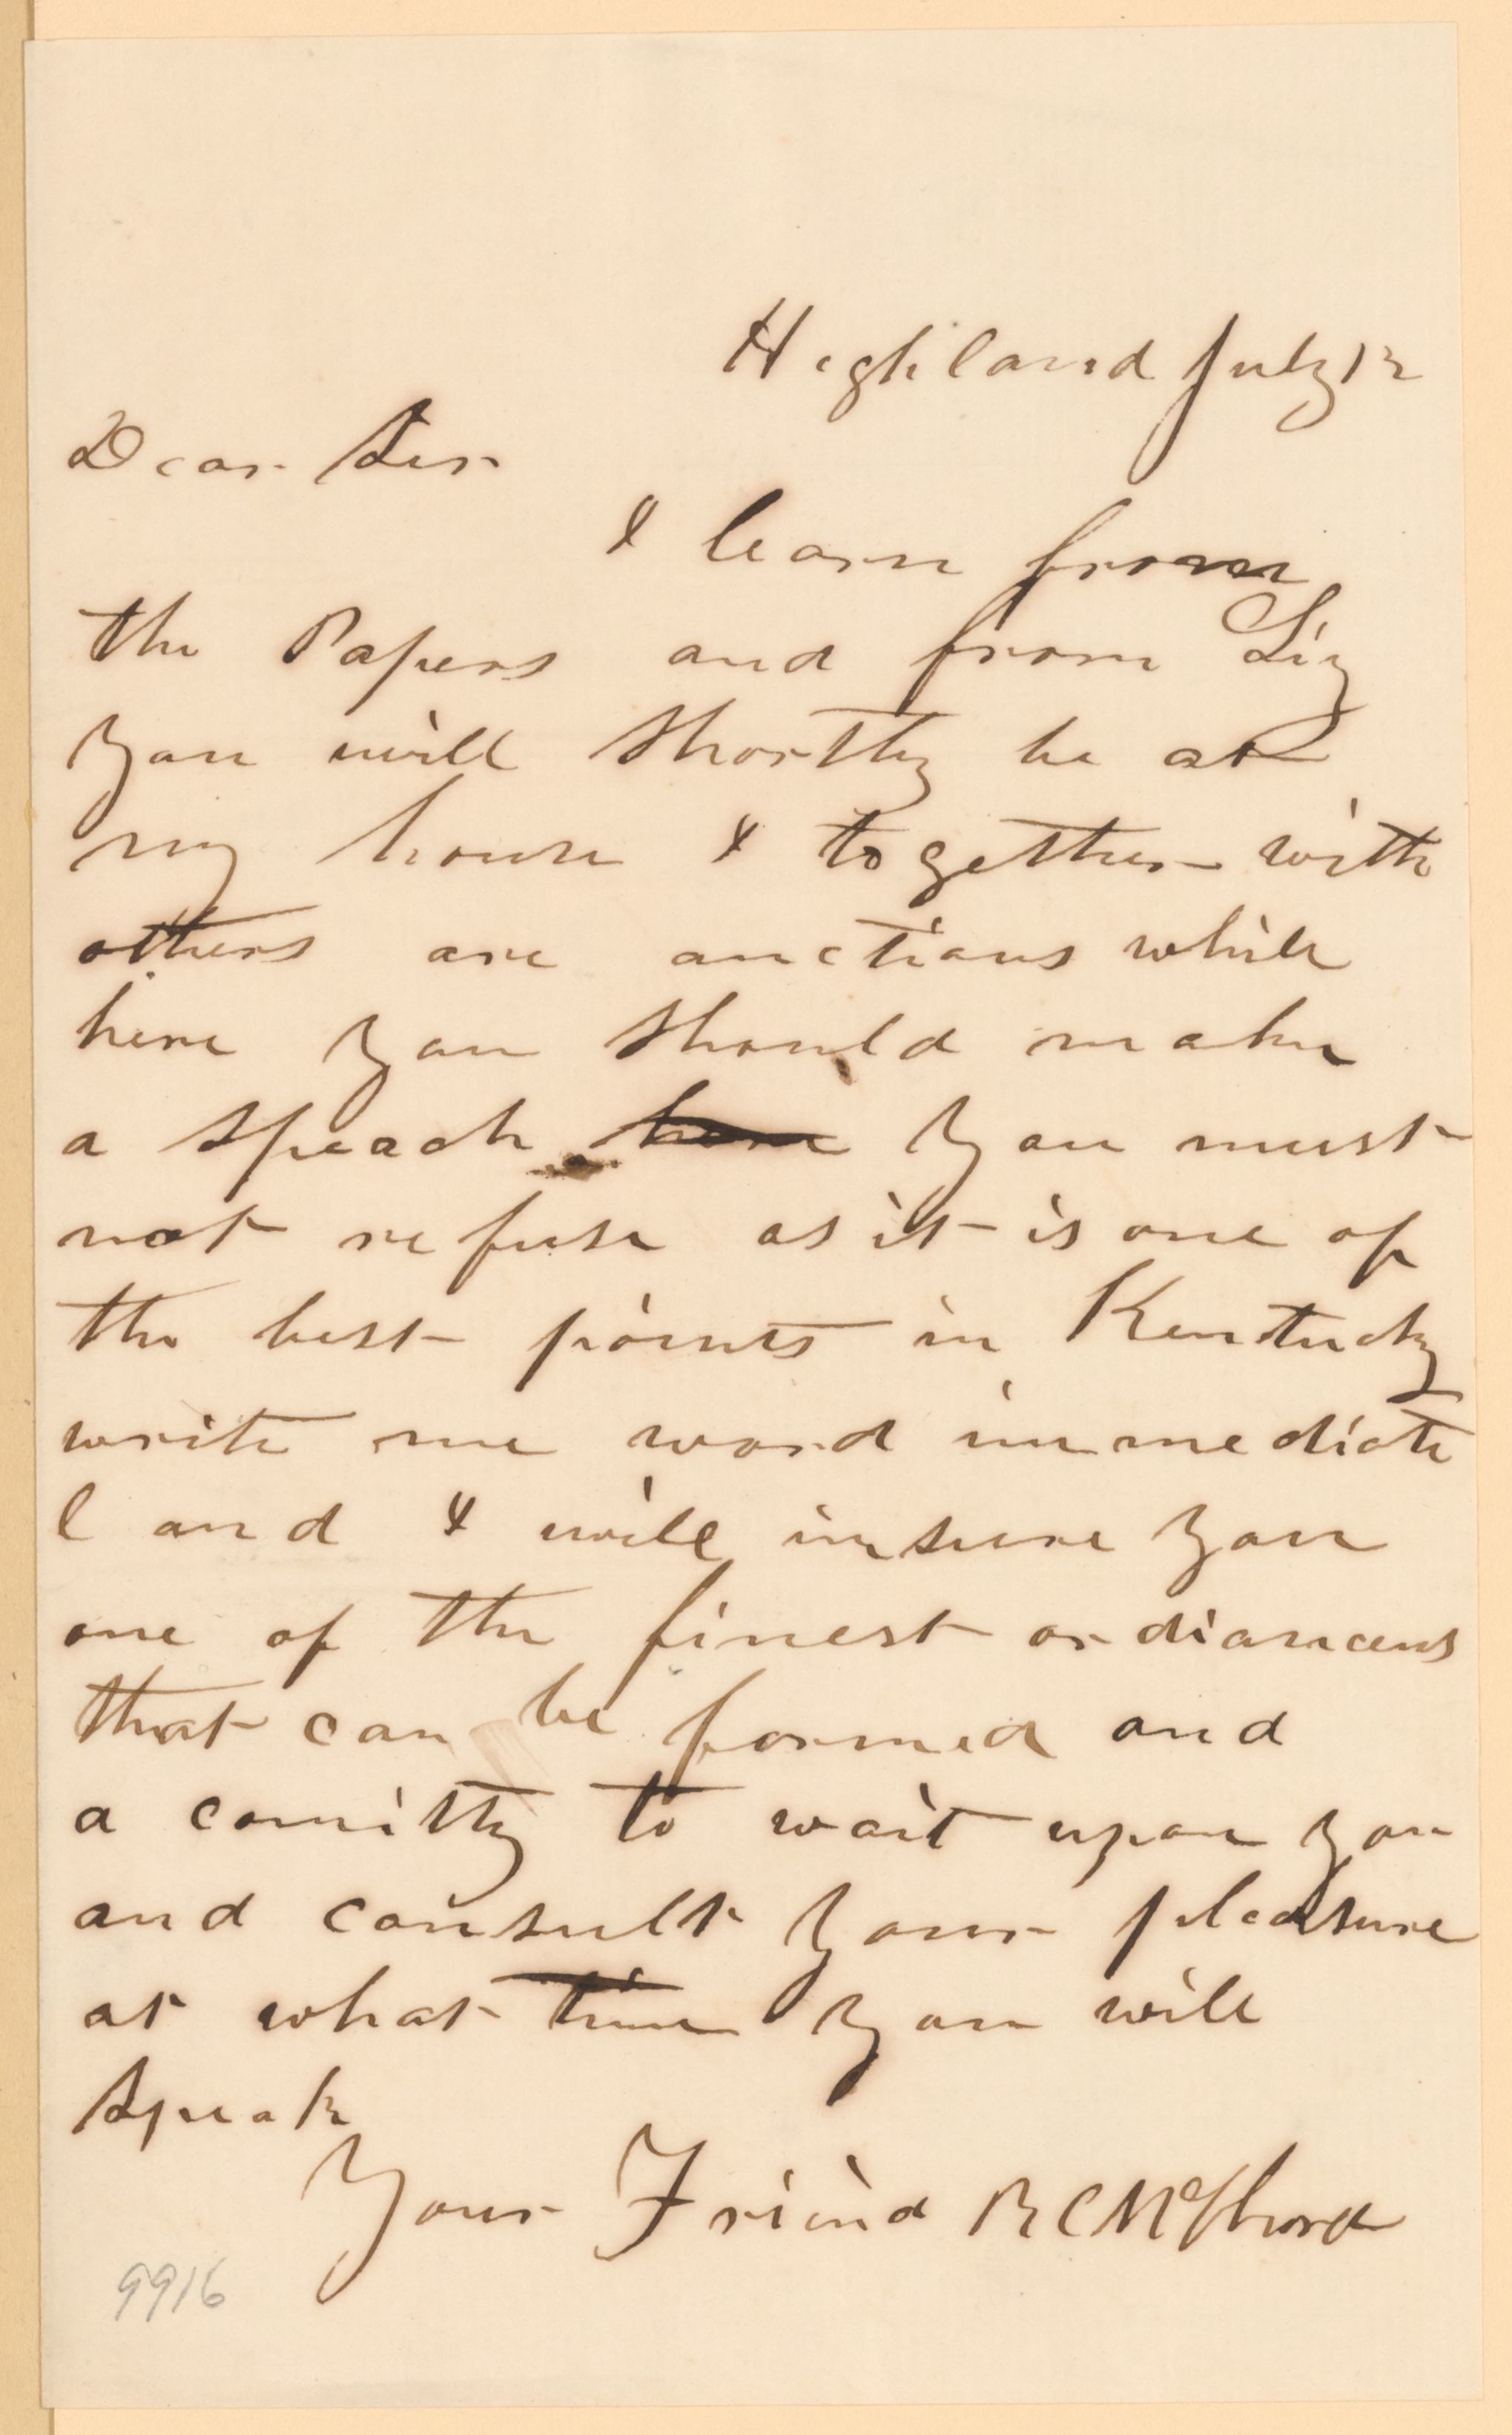 Highland July 12
Dear Sir
I learn from
the Papers and from Liz
you will shortly be at
my house I together with
others are anctious while
here you should make
a speach here You must
not refuse as it is one of
the best points in Kentucky
write me word immediate
l and I will insure you
one of the finest ordiances
that can be formed and
a comitty to wait upon you
and consult your pleasure
at what time you will
speak
Your Friend R C
9916